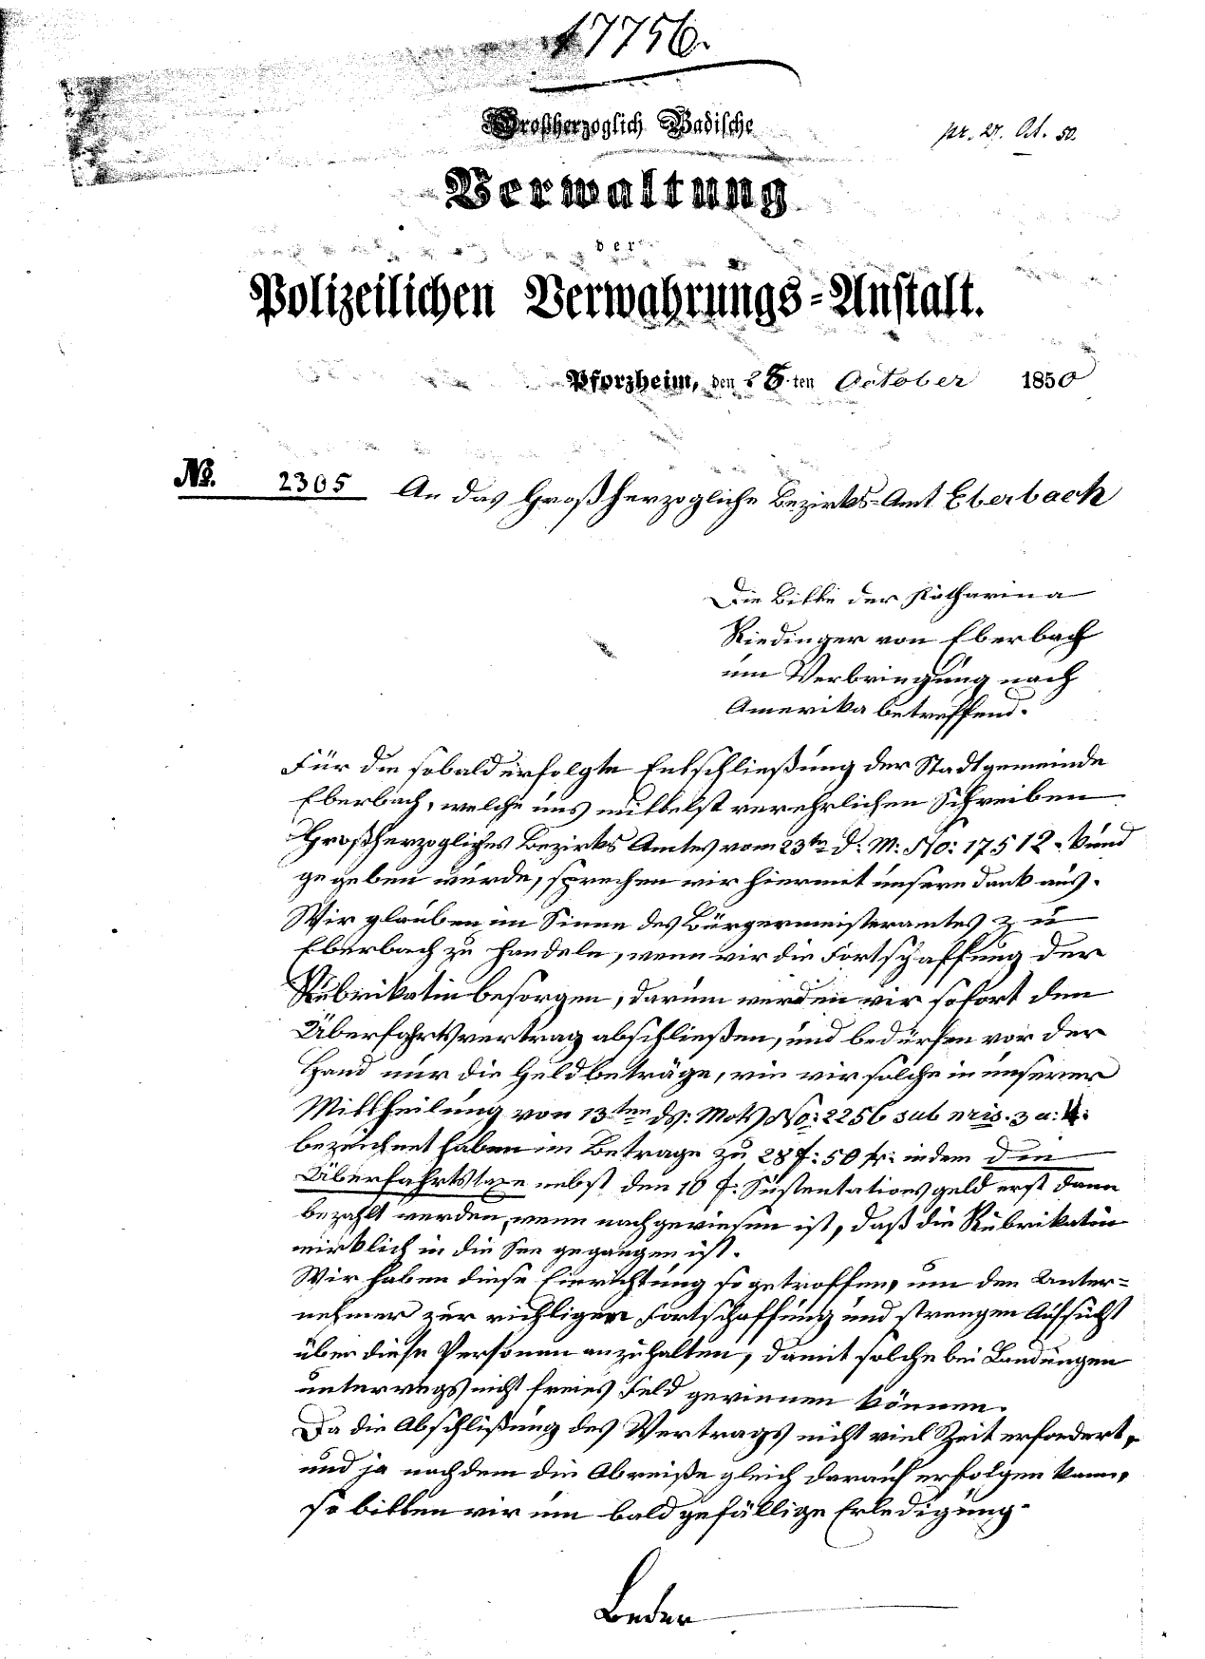 17756.
Großherzoglich Badische
pr. 27. Oct. 50.
Verwaltung
der
Polizeilichen Verwahrungs-Anstalt.
Pforzheim, den 26ten October 1850
No. 2305 An das Großherzogliche Bezirks-Amt Eberbach
Die Bitte der Katharina
Riedinger von Eberbach
um Verbringung nach
Amerika betreffend.
Für die sobald erfolgte Entschließung der Stadtgemeinde
Eberbach, welche uns mittelst verehrlichen Schreiben
Großherzogliches Bezirks Amtes vom 23ten d: M: No: 17512. kund
gegeben wurde, sprechen wir hiermit unsern dank aus.
Wir glauben im Sinne des Bürgermeisteramtes zu
Eberbach zu handeln, wenn wir die Fortschaffung der
Rubrikatin besorgen, darum werden wir sofort den
Überfahrtsvertrag abschließen, und bedürfen vor der
Hand nur die Geldbeträge, wie wir solche in unserer
Mittheilung von 13ten ds: Mots No: 2256 sub nris. 3 a: 4:
bezeichnet haben im Betrage zu 28 f: 50 kr: indem die
Überfahrtstaxe nebst den 10 f: Sustentationsgeld erst dann
bezahlt werden, wenn nachgewiesen ist, daß die Rubrikatin
wirklich in die See gegangen ist.
Wir haben diese Einrichtung so getroffen, um den Unter=
nehmer zur richtigen Fortschaffung und strengen Aufsicht
über diese Personen anzuhalten, damit solche bei Landungen
unterwegs nicht freies Feld gewinnen können.
Da die Abschlißung des Vertrags nicht viel Zeit erfordert,
und ja nachdem die Abreiße gleich darauf erfolgen kann,
so bitten wir um bald gefällige Erledigung.